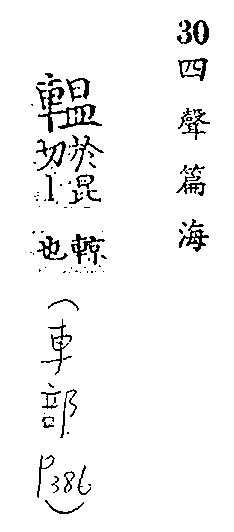 30四聲篇海
轀
於昆
切丨
輬也
(車部
P386)